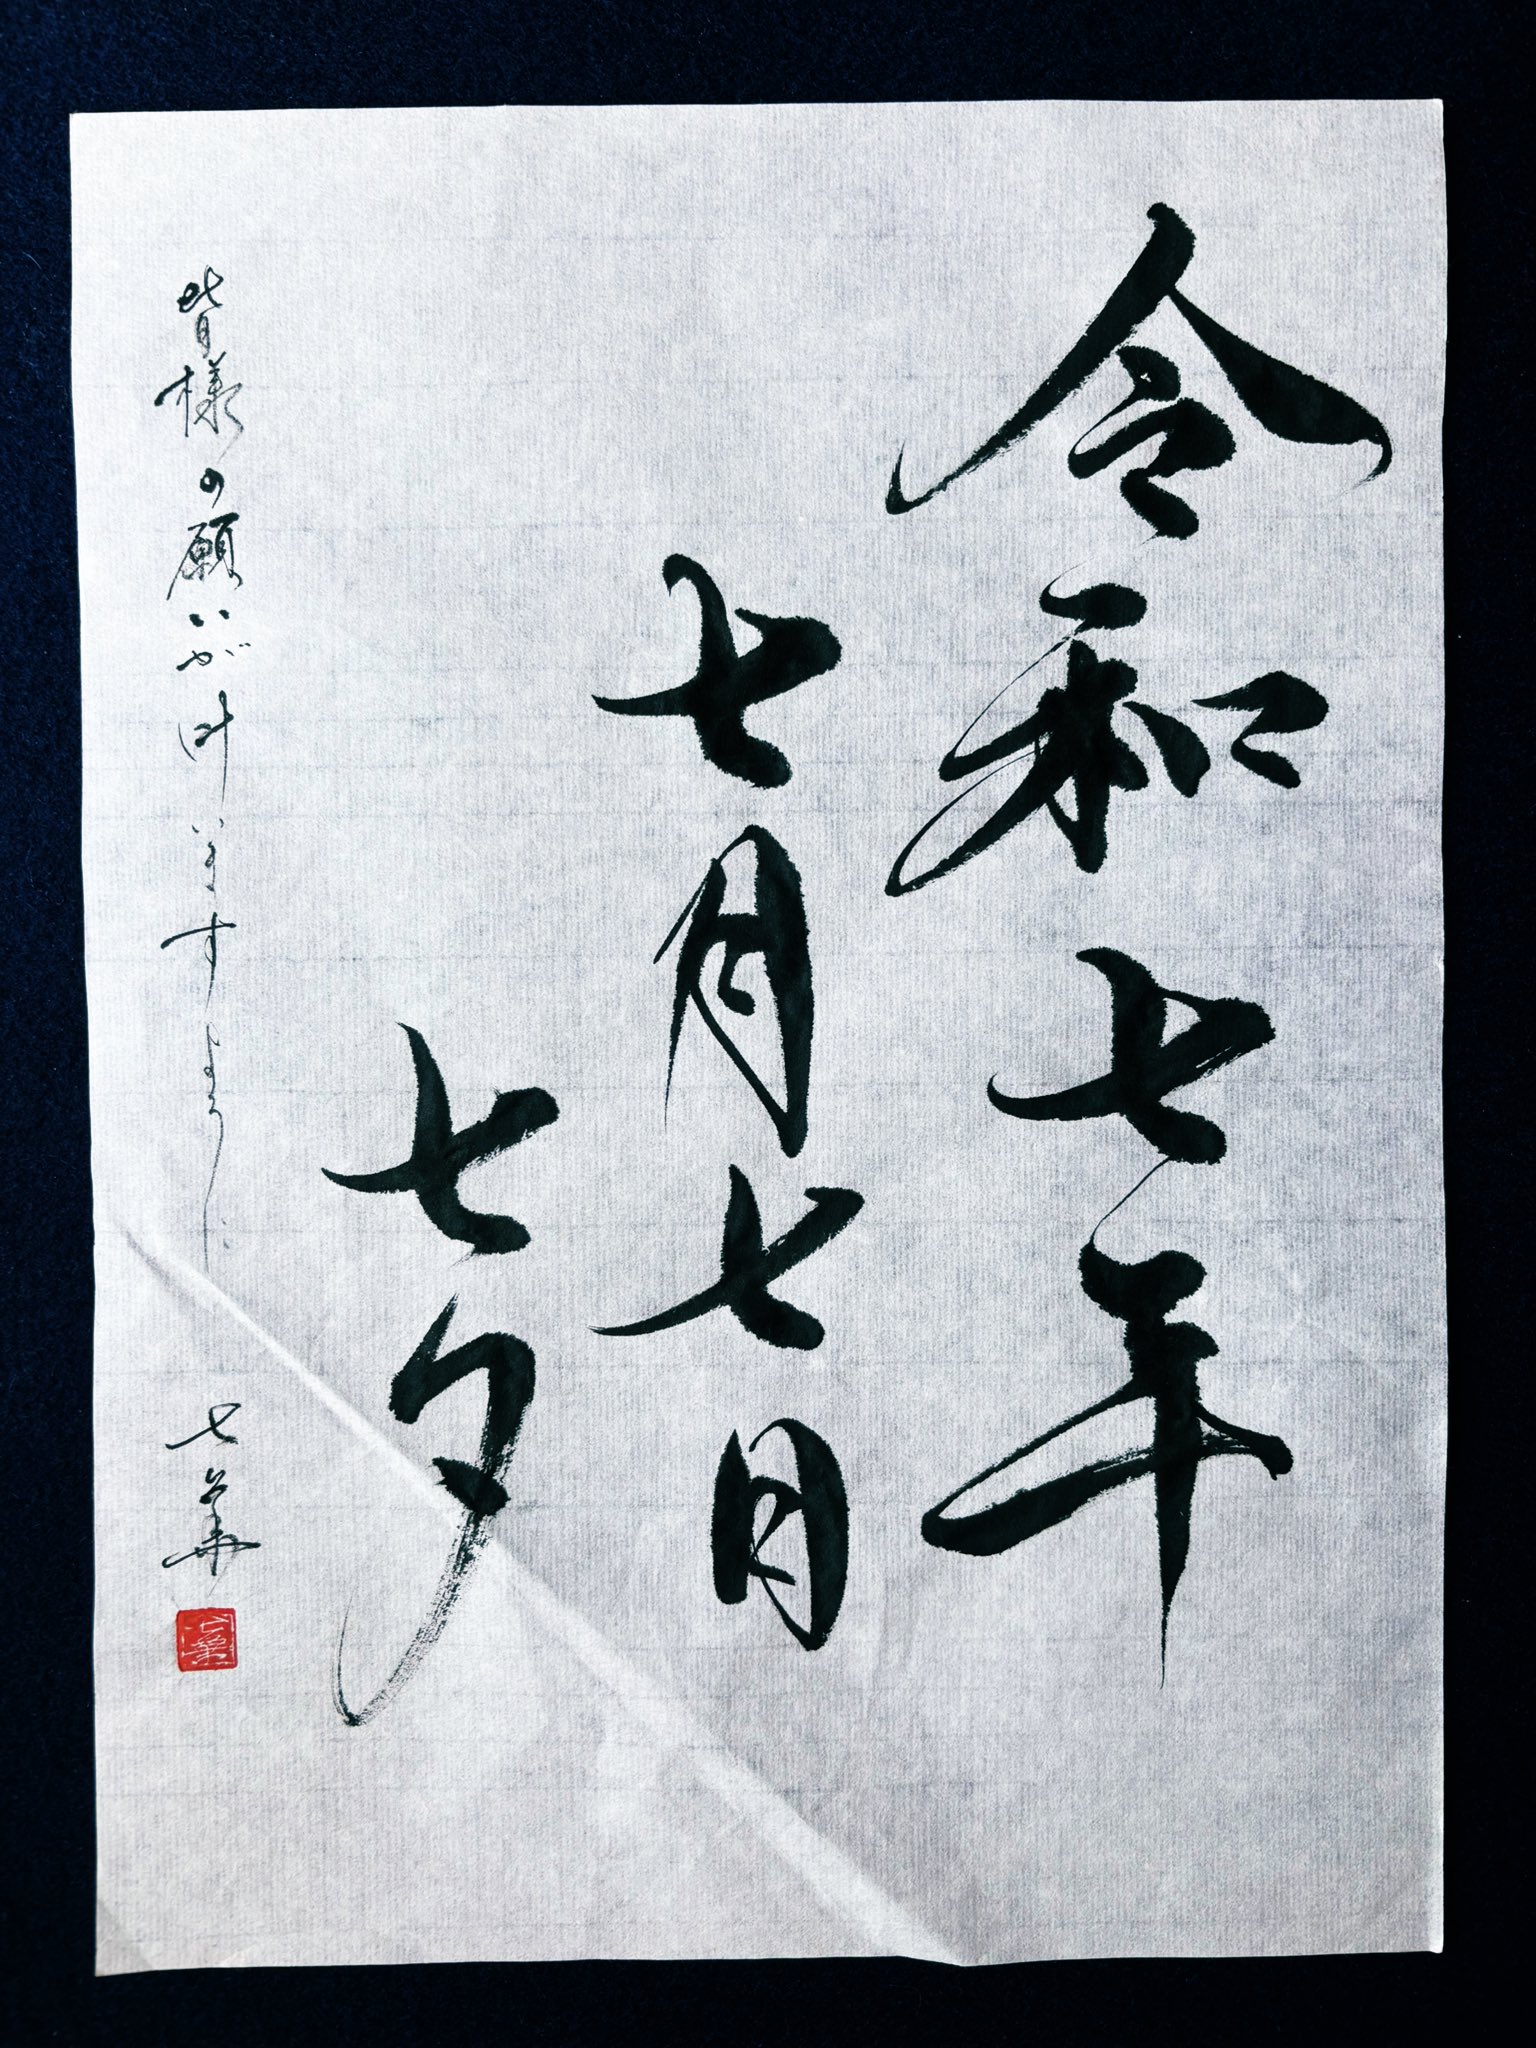 令和七年
七月七日
七夕
皆様の願いが叶いますように
七華